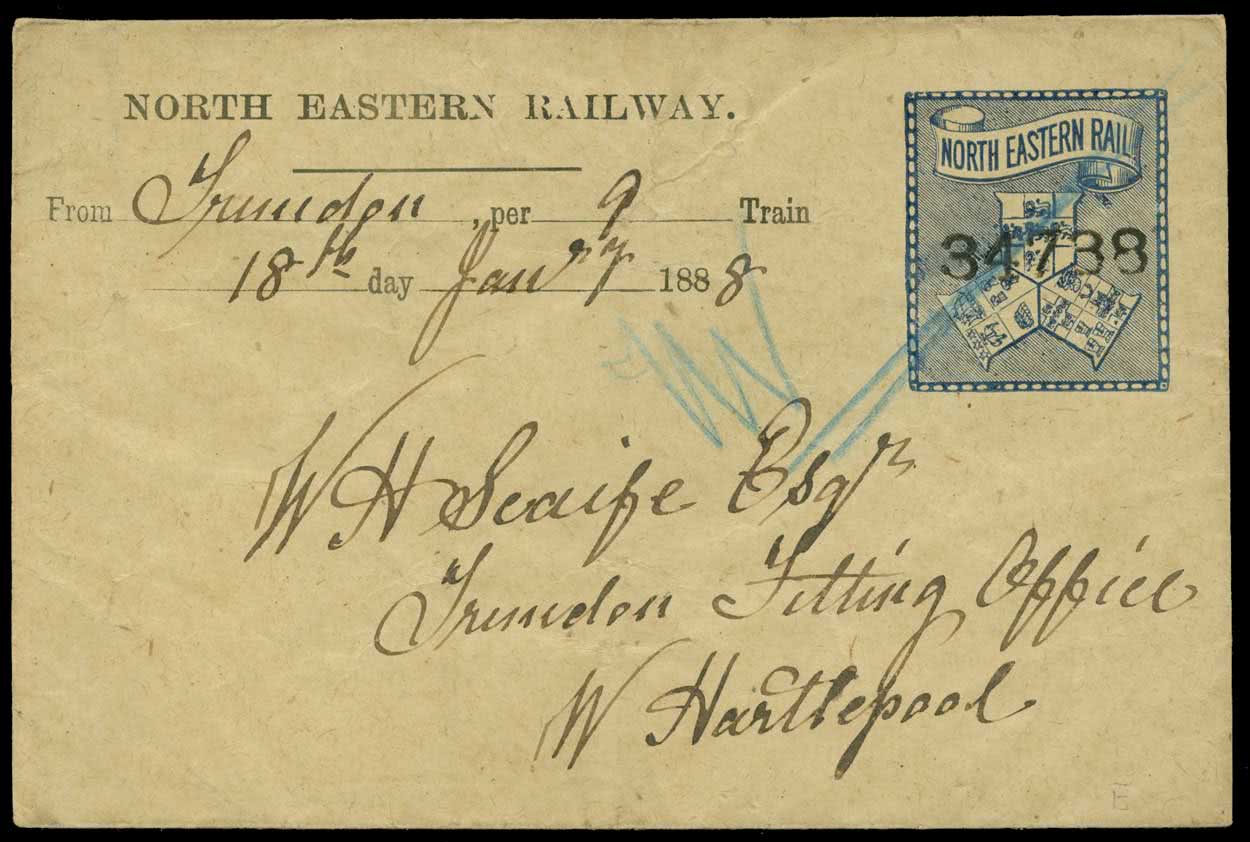 NORTH EASTERN RAILWAY.
NORTH EASTERN RAIL
From Trimdon, per 9 Train
34738
18th day Jany 1888
W H Scaife Esqr
Trimdon Fitting Office
W Hartlepool
E